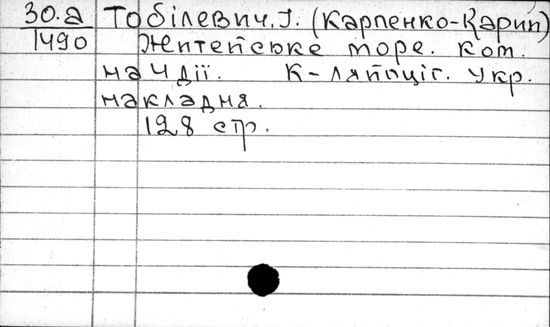 30.а Тобілевич, І. (Карпенко-Карий)
1490 Житейське море. Ком.
на 4 дії. К-Ляпоціґ. Укр.
накладня.
128 стр.